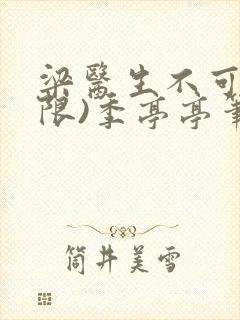 梁醫生不可
限)季亭亭筆
筒井美雪